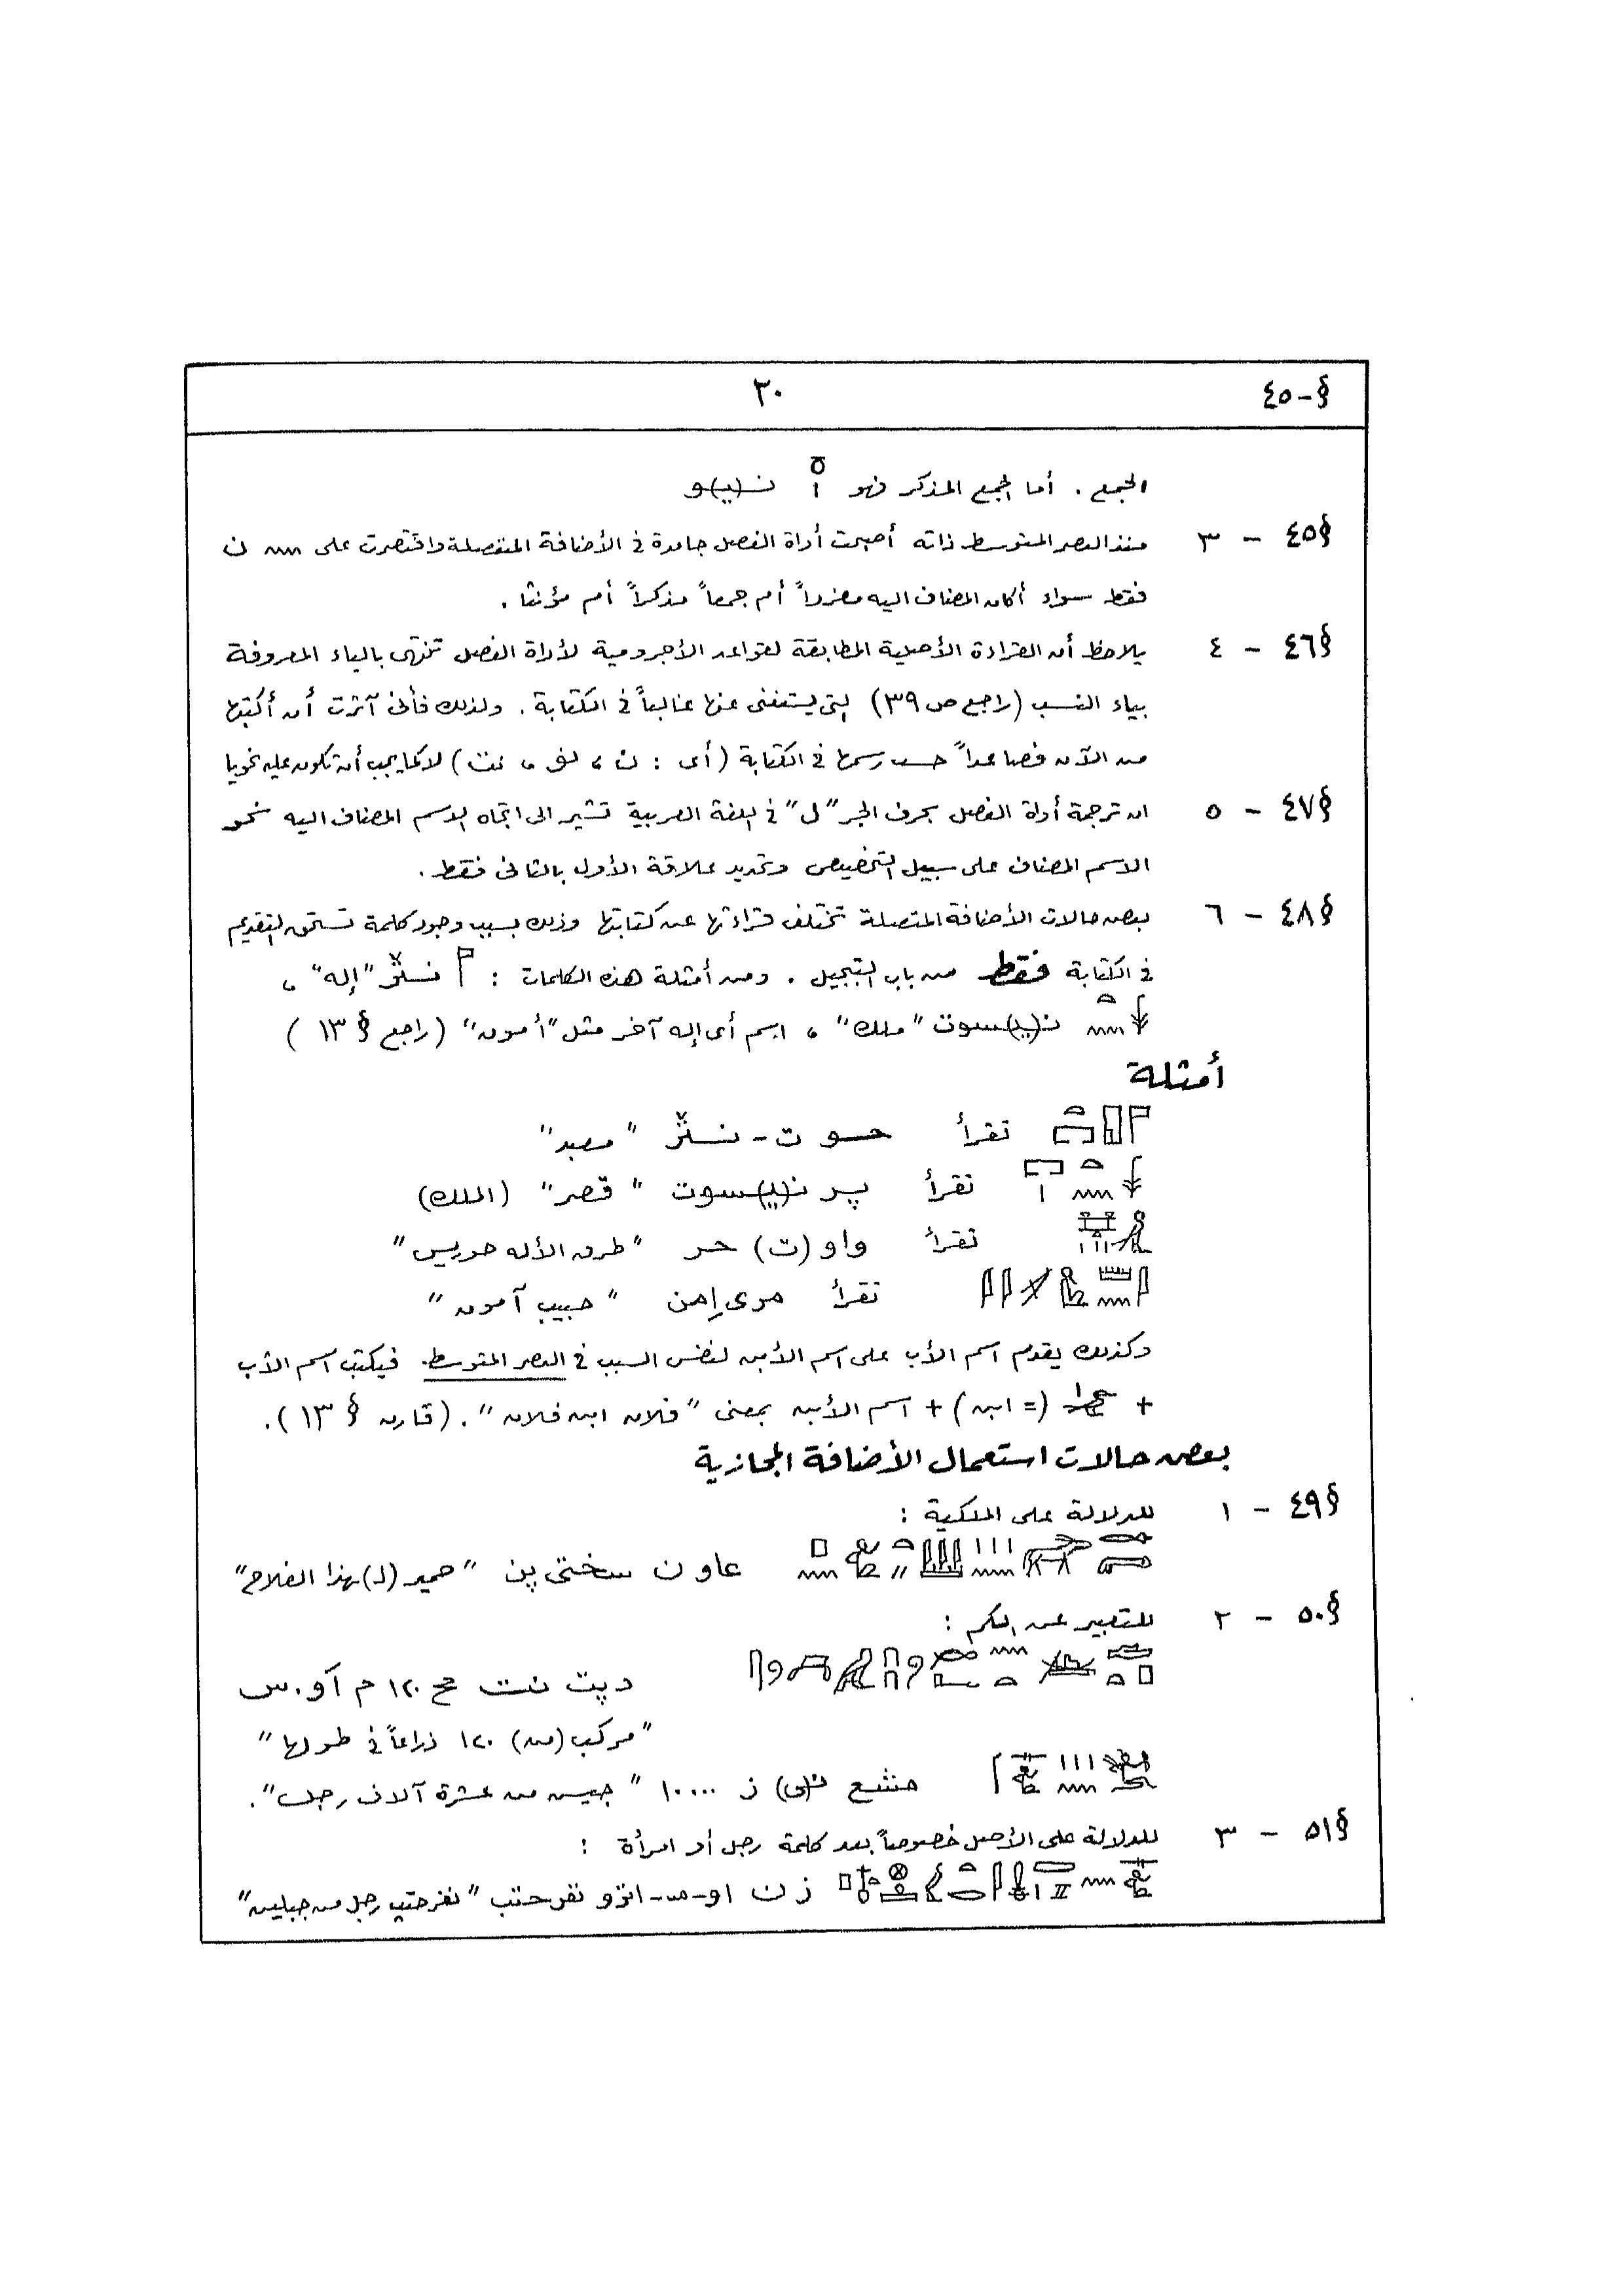 §-٤٥
٣٠
الجمع . أما الجمع المذكر فهو ن(ي)و
§٤٥ - ٣ منذ العصر المتوسط ذاته أصبحت أداة الفصل جامدة في الأضافة المنفصلة واقتصرت على ن
فقط سواء أكان المضاف اليه مفرداً أم جمعاً مذكراً أم مؤنثا .
§٤٦ - ٤ يلاحظ أن القراءة الأصلية المطابقة لقواعد الأجرومية لأداة الفصل تنتهى بالياء المعروفة
بياء النسب (راجع ص ٣٩) التى يستغنى عنها غالباً في الكتابة . ولذلك فأنى آثرت أن أكتبها
من الآن فصاعداً حسب رسمها في الكتابة (أى : ن ، نو ، نت) لا كما يجب أن تكون عليه نحويا
§٤٧ - ٥ ان ترجمة أداة الفصل بحرف الجر "ل" في اللغة العربية تشير الى اتجاه الاسم المضاف اليه نحو
الاسم المضاف على سبيل التخصيص وتحديد علاقة الأول بالثانى فقط .
§٤٨ - ٦ بعض حالات الأضافة المتصلة تختلف قراءتها عن كتابتها وذلك بسبب وجود كلمة تستحق التقديم
في الكتابة فقط من باب التبجيل . ومن أمثلة هذه الكلمات : نتر "إله" ،
ن(ي)سوت "ملك" ، اسم أى إله آخر مثل "أمون" (راجع § ١٣ )
أمثلة
تقرأ حوت - نتر "معبد"
تقرأ پر ن(ي)سوت "قصر" (الملك)
تقرأ واو(ت) حر "طرق الأله حوريس"
تقرأ مرى إمن "حبيب آمون"
وكذلك يقدم اسم الأب على اسم الأبن لنفس السبب في العصر المتوسط. فيكتب اسم الأب
+ (= ابن) + اسم الأبن بمعنى "فلان ابن فلان" . (قارن § ١٣ ) .
بعض حالات استعمال الأضافة المجازية
§٤٩ - ١ للدلالة على الملكية :
عاو ن سختى پن "حمير (لـ)هذا الفلاح"
§٥٠ - ٢ للتعبير عن الكم :
دپت نت مح ١٢٠ م آو.س
"مركب (من) ١٢٠ ذراعاً في طولها"
مشع ن(ى) ز ١٠٠٠٠ "جيش من عشرة آلاف رجل" .
§٥١ - ٣ للدلالة على الأصل خصوصاً بعد كلمة رجل أو امرأة :
ز ن نفر حتب "نفر حتب رجل من جبلين"